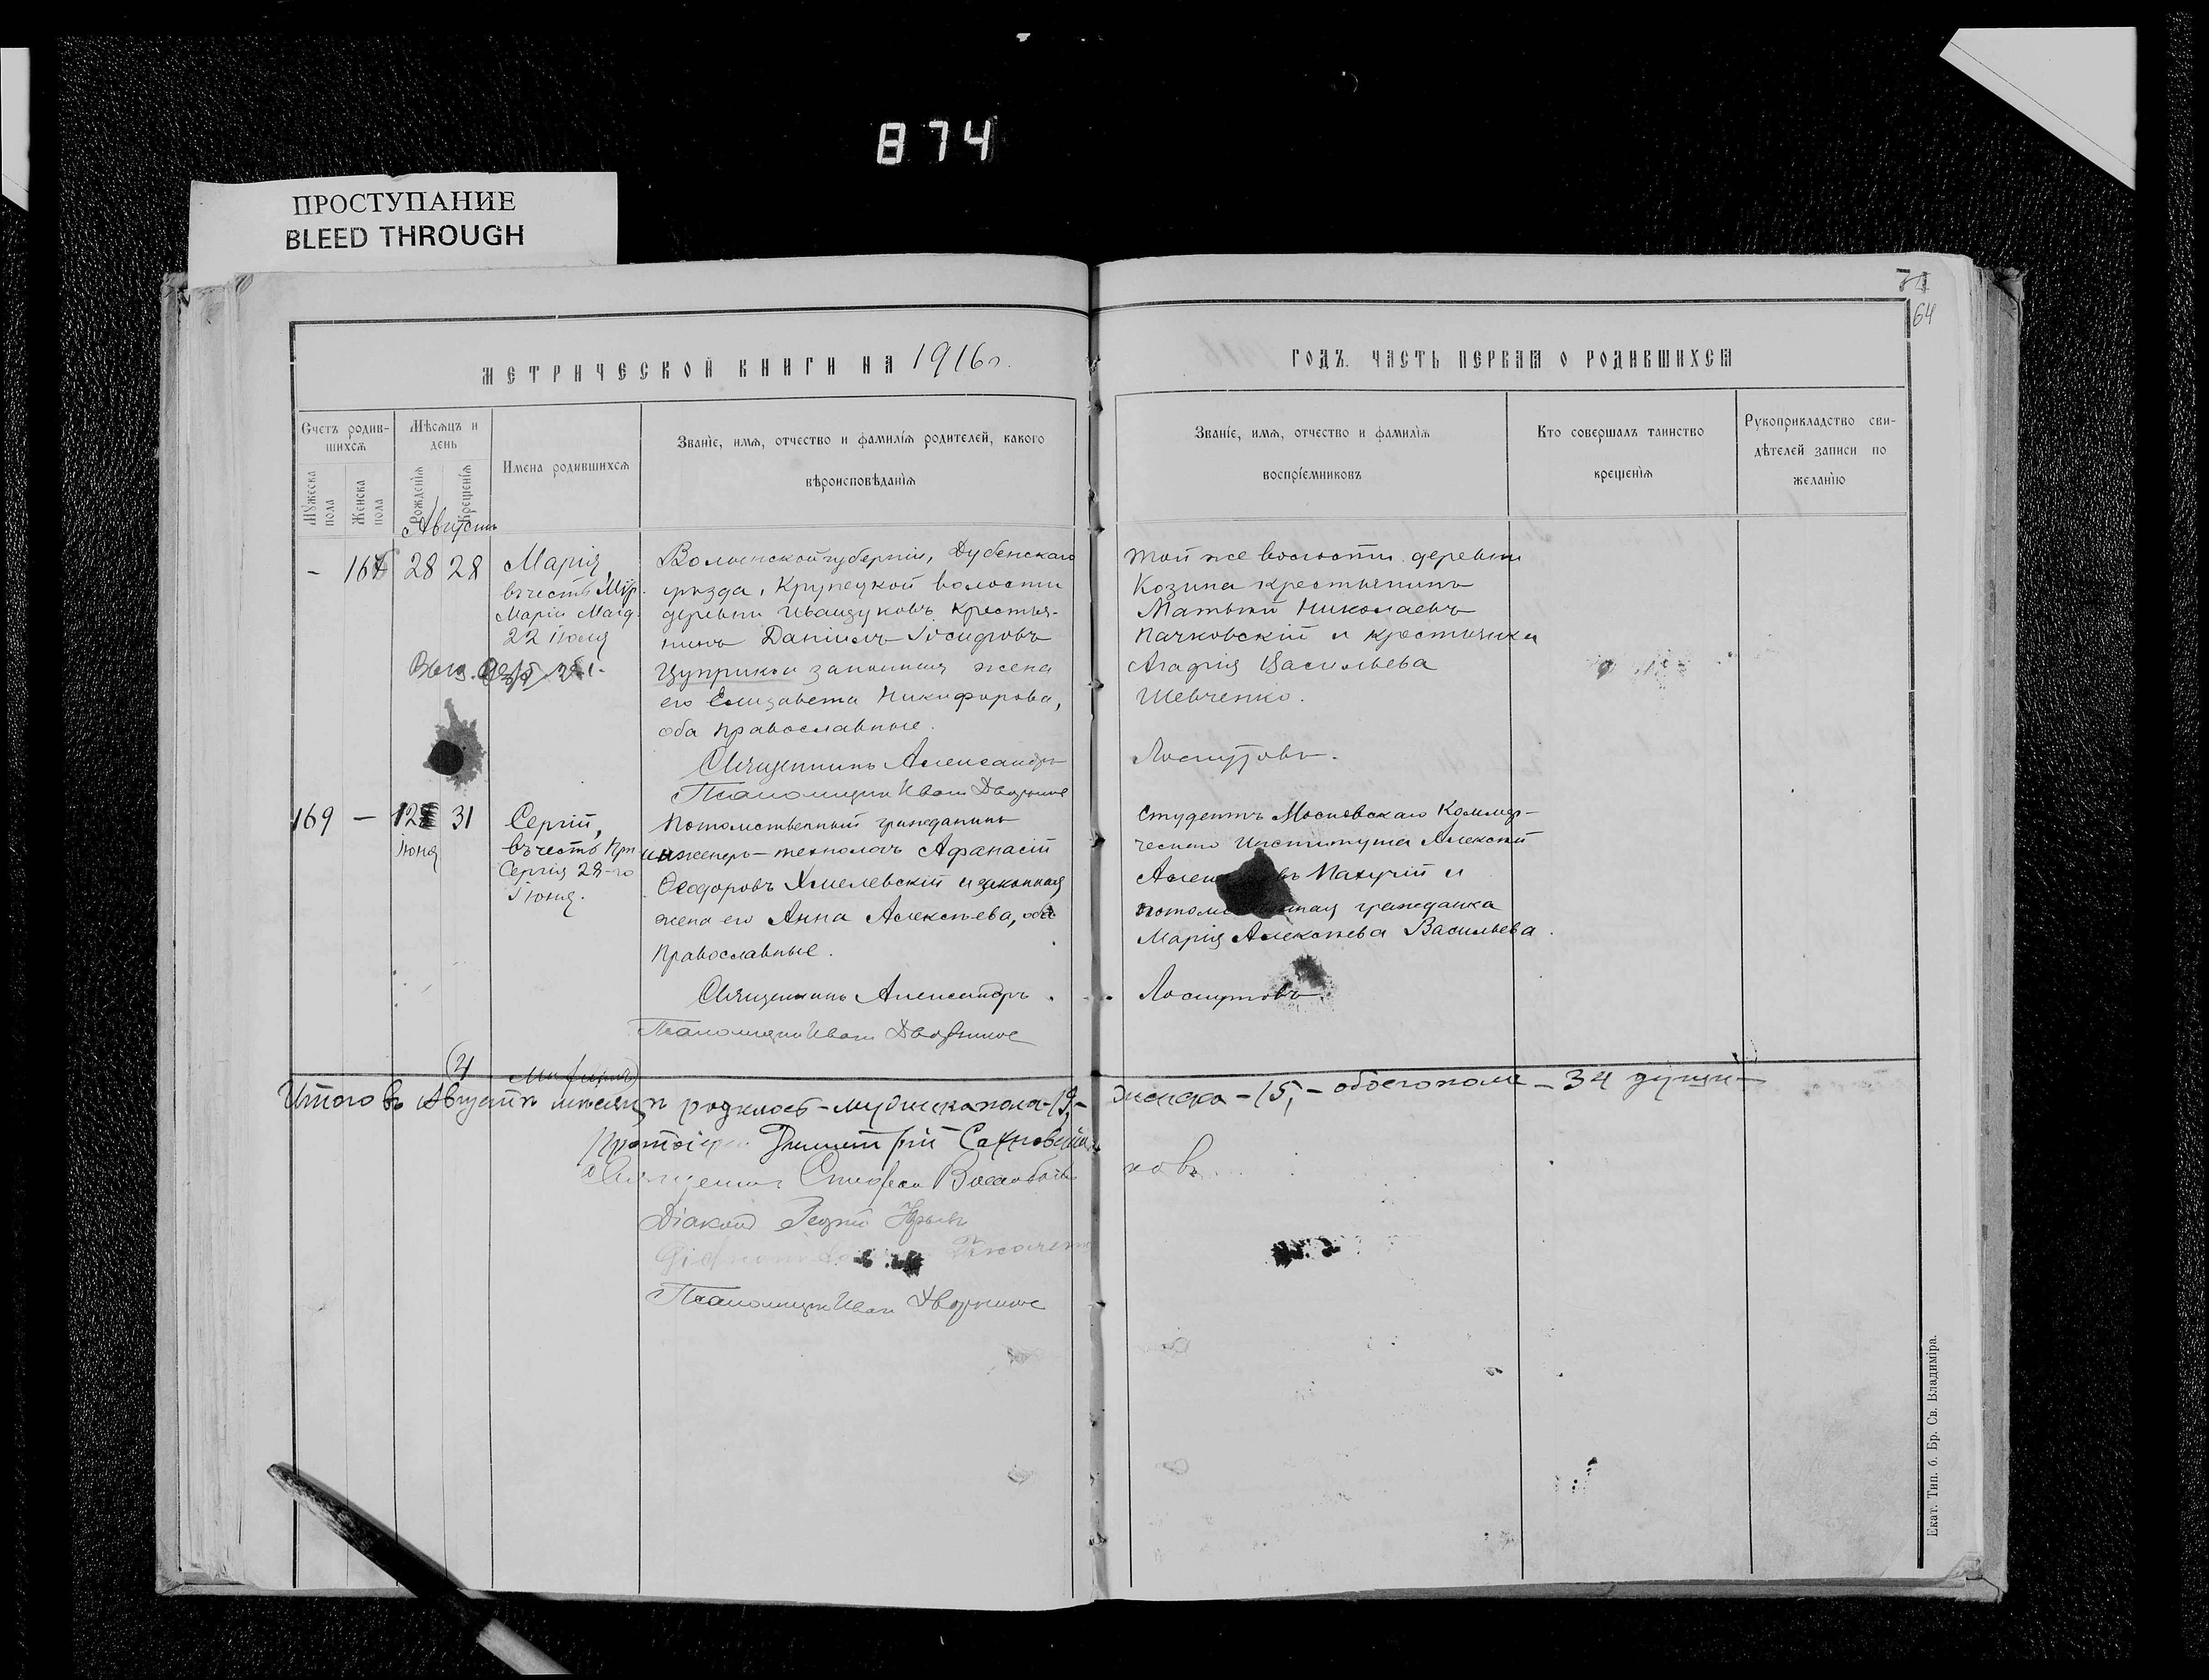 874
ПРОСТУПАНИЕ
BLEED THROUGH
64
МЕТРИЧЕСКОЙ КНИГИ НА 1916 г.
ГОДЪ. ЧАСТЬ ПЕРВАЯ О РОДИВШИХСЯ
Счетъ родив-
шихся
Мужеска пола
Женска пола
Мѣсяцъ и
день
Рожденія
Крещенія
Имена родившихся
Званіе, имя, отчество и фамилія родителей, какого
вѣроисповѣданія
Званіе, имя, отчество и фамилія
воспріемниковъ
Кто совершалъ таинство
крещенія
Рукоприкладство сви-
дѣтелей записи по
желанію
Августъ
- 28 28
Марія,
въ честь Мѵр.
Маріи Магд.
22 Іюля
Волынской губерніи, Дубенскаго
уѣзда, Крупецкой волости
деревни Иващуковъ крестья-
нинъ Даніилъ Іосифовъ
Цуприкъ законная жена
его Елизавета Никифорова,
оба православные.
Священникъ Александръ
Псаломщикъ Иванъ
той же волости деревни
Козина крестьянинъ
Матѳій Николаевъ
Пачковскій и крестьянка
Агафія Васильева
Шевченко.
Лоскутовъ.
169 — 12 31
Іюня
Сергій,
въ честь Прп
Сергія 28-го
Іюня.
Потомственный гражданинъ
инженеръ-технологъ Афанасій
Ѳеодоровъ Хмелевскій и законная
жена его Анна Алексѣева, оба
православные.
Священникъ Александръ
Псаломщикъ Иванъ
Студентъ Московскаго Коммер-
ческаго Института Алексѣй
и
гражданка
Марія Алексѣева Васильева.
Лоскутовъ
Итого въ Августѣ мѣсяцѣ родилось - мужска пола - 19, - женска - 15, - обоего пола - 34 души -
Протоіерей Димитрій
Священникъ
Діаконъ
Псаломщикъ Иванъ
Екат. Тип. б. Бр. Св. Владиміра.